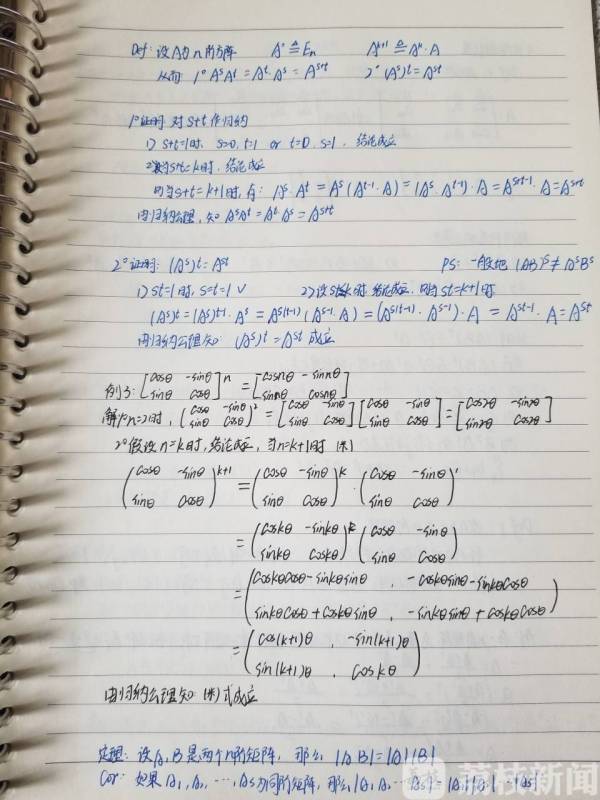 Def: 设A为n阶方阵 A⁰ ≜ Eₙ Aᵏ⁺¹ ≜ Aᵏ·A
从而 1° AˢAᵗ = Aᵗ·Aˢ = Aˢ⁺ᵗ 2° (Aˢ)ᵗ = Aˢᵗ
1°证明: 对s+t作归纳
1) s+t=1时, s=0, t=1 or t=0, s=1, 结论成立
2) s+t=k时, 结论成立
则当s+t=k+1时, 有: Aˢ·Aᵗ = Aˢ(Aᵗ⁻¹·A) = (Aˢ·Aᵗ⁻¹)·A = Aˢ⁺ᵗ⁻¹·A = Aˢ⁺ᵗ
由归纳公理, 知 AˢAᵗ = Aᵗ·Aˢ = Aˢ⁺ᵗ
2°证明: (Aˢ)ᵗ = Aˢᵗ PS: 一般地 (AB)ˢ ≠ AˢBˢ
1) st=1时, s=t=1 √ 2) 设st≤k时, 结论成立, 则当st=k+1时
(Aˢ)ᵗ = (Aˢ)ᵗ⁻¹·Aˢ = Aˢ⁽ᵗ⁻¹⁾(Aˢ⁻¹·A) = (Aˢ⁽ᵗ⁻¹⁾·Aˢ⁻¹)·A = Aˢᵗ⁻¹·A = Aˢᵗ
由归纳公理知: (Aˢ)ᵗ = Aˢᵗ 成立
例3: [cosθ -sinθ; sinθ cosθ]ⁿ = [cosnθ -sinnθ; sinnθ cosnθ]
解: 1° n=2时, (cosθ -sinθ; sinθ cosθ)² = [cosθ -sinθ; sinθ cosθ][cosθ -sinθ; sinθ cosθ] = [cos2θ -sin2θ; sin2θ cos2θ]
2° 假设n=k时, 结论成立, 当n=k+1时 (*)
(cosθ -sinθ; sinθ cosθ)ᵏ⁺¹ = (cosθ -sinθ; sinθ cosθ)ᵏ·(cosθ -sinθ; sinθ cosθ)¹
= (coskθ -sinkθ; sinkθ coskθ)(cosθ -sinθ; sinθ cosθ)
= (coskθcosθ-sinkθsinθ, -coskθsinθ-sinkθcosθ; sinkθcosθ+coskθsinθ, -sinkθsinθ+coskθcosθ)
= (cos(k+1)θ, -sin(k+1)θ; sin(k+1)θ, coskθ)
由归纳公理知 (*)式成立
定理: 设A, B是两个n阶矩阵, 那么 |AB|=|A||B|
Cor: 如果A₁, A₂, ⋯, Aₛ为同阶矩阵, 那么|A₁A₂⋯Aₛ|=|A₁||A₂|⋯|Aₛ|
荔枝新闻